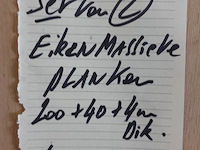 Set van 2
EikeN MASSieve
PLANKEN
200 + 40 + 4 cm
Dik.